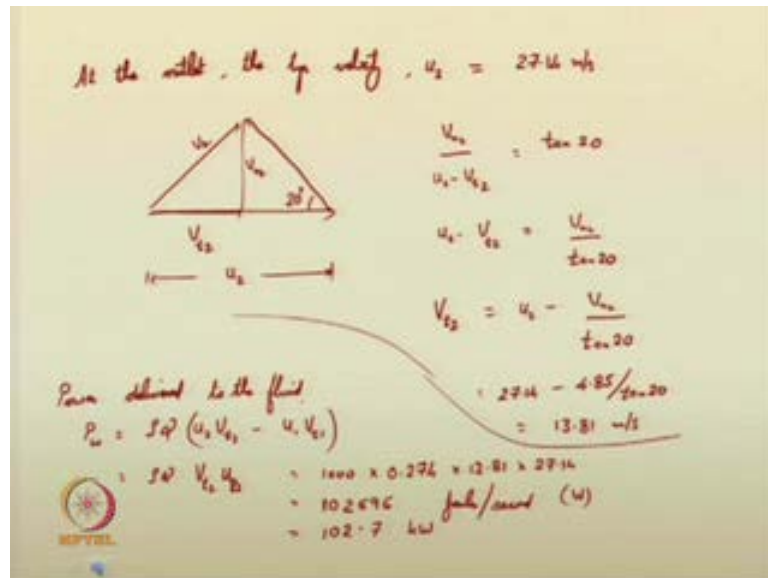 At the outlet, the tip velocity, u₂ = 27.14 m/s
Vn₂ / (u₂ - Vt₂) = tan 20
V₂
Vn₂
20°
u₂ - Vt₂ = Vn₂ / tan 20
Vt₂
u₂
Vt₂ = u₂ - Vn₂ / tan 20
= 27.14 - 4.85/tan 20
= 13.81 m/s
Power delivered to the fluid
= ρQ (u₂ Vt₂ - u₁ Vt₁)
= ρQ Vt₂ u₂ = 1000 x 0.274 x 13.81 x 27.14
= 102696 (W)
= 102.7 kW
NPTEL